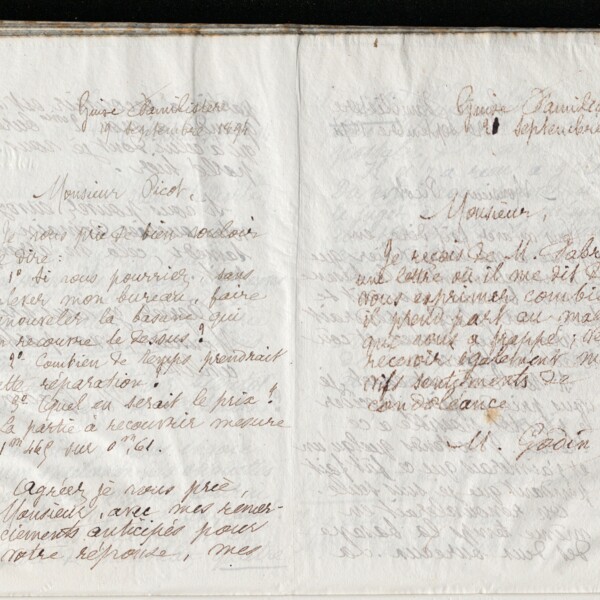 Guise Familistère
19 septembre 1894
Monsieur Picot,
Je vous prie de bien vouloir
dire :
1° Si vous pourriez, sans
lever mon bureau, faire
renouveler la basane qui
en recouvre le dessus ?
2° Combien de temps prendrait
cette réparation ?
3° Quel en serait le prix ?
la partie à recouvrir mesure
1m 465 sur 0m 61.
Agréez je vous prie,
Monsieur, avec mes remer-
ciements anticipés pour
votre réponse, mes
Guise Famili
21 septembre
Monsieur,
Je reçois de M. Fabr
une lettre où il me dit d
vous exprimer combie
il prend part au mal
qui vous a frappé ;
recevoir également m
vifs sentiments de
condoléance
M. Godin